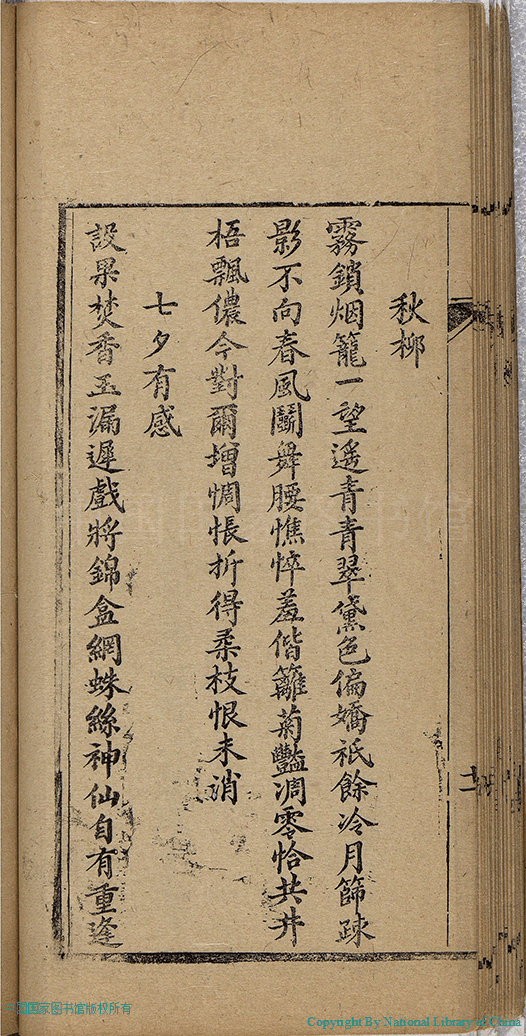 秋柳
霧鎖烟籠一望遥青青翠黛色偏嬌祇餘冷月篩疎
影不向春風鬭舞腰憔悴羞偕籬菊艷凋零恰共井
梧飄儂今對爾增惆悵折得柔枝恨未消
七夕有感
設果焚香玉漏遲戲將錦盒網蛛絲神仙自有重逢
十
中国国家图书馆版权所有
Copyright By National Library of China